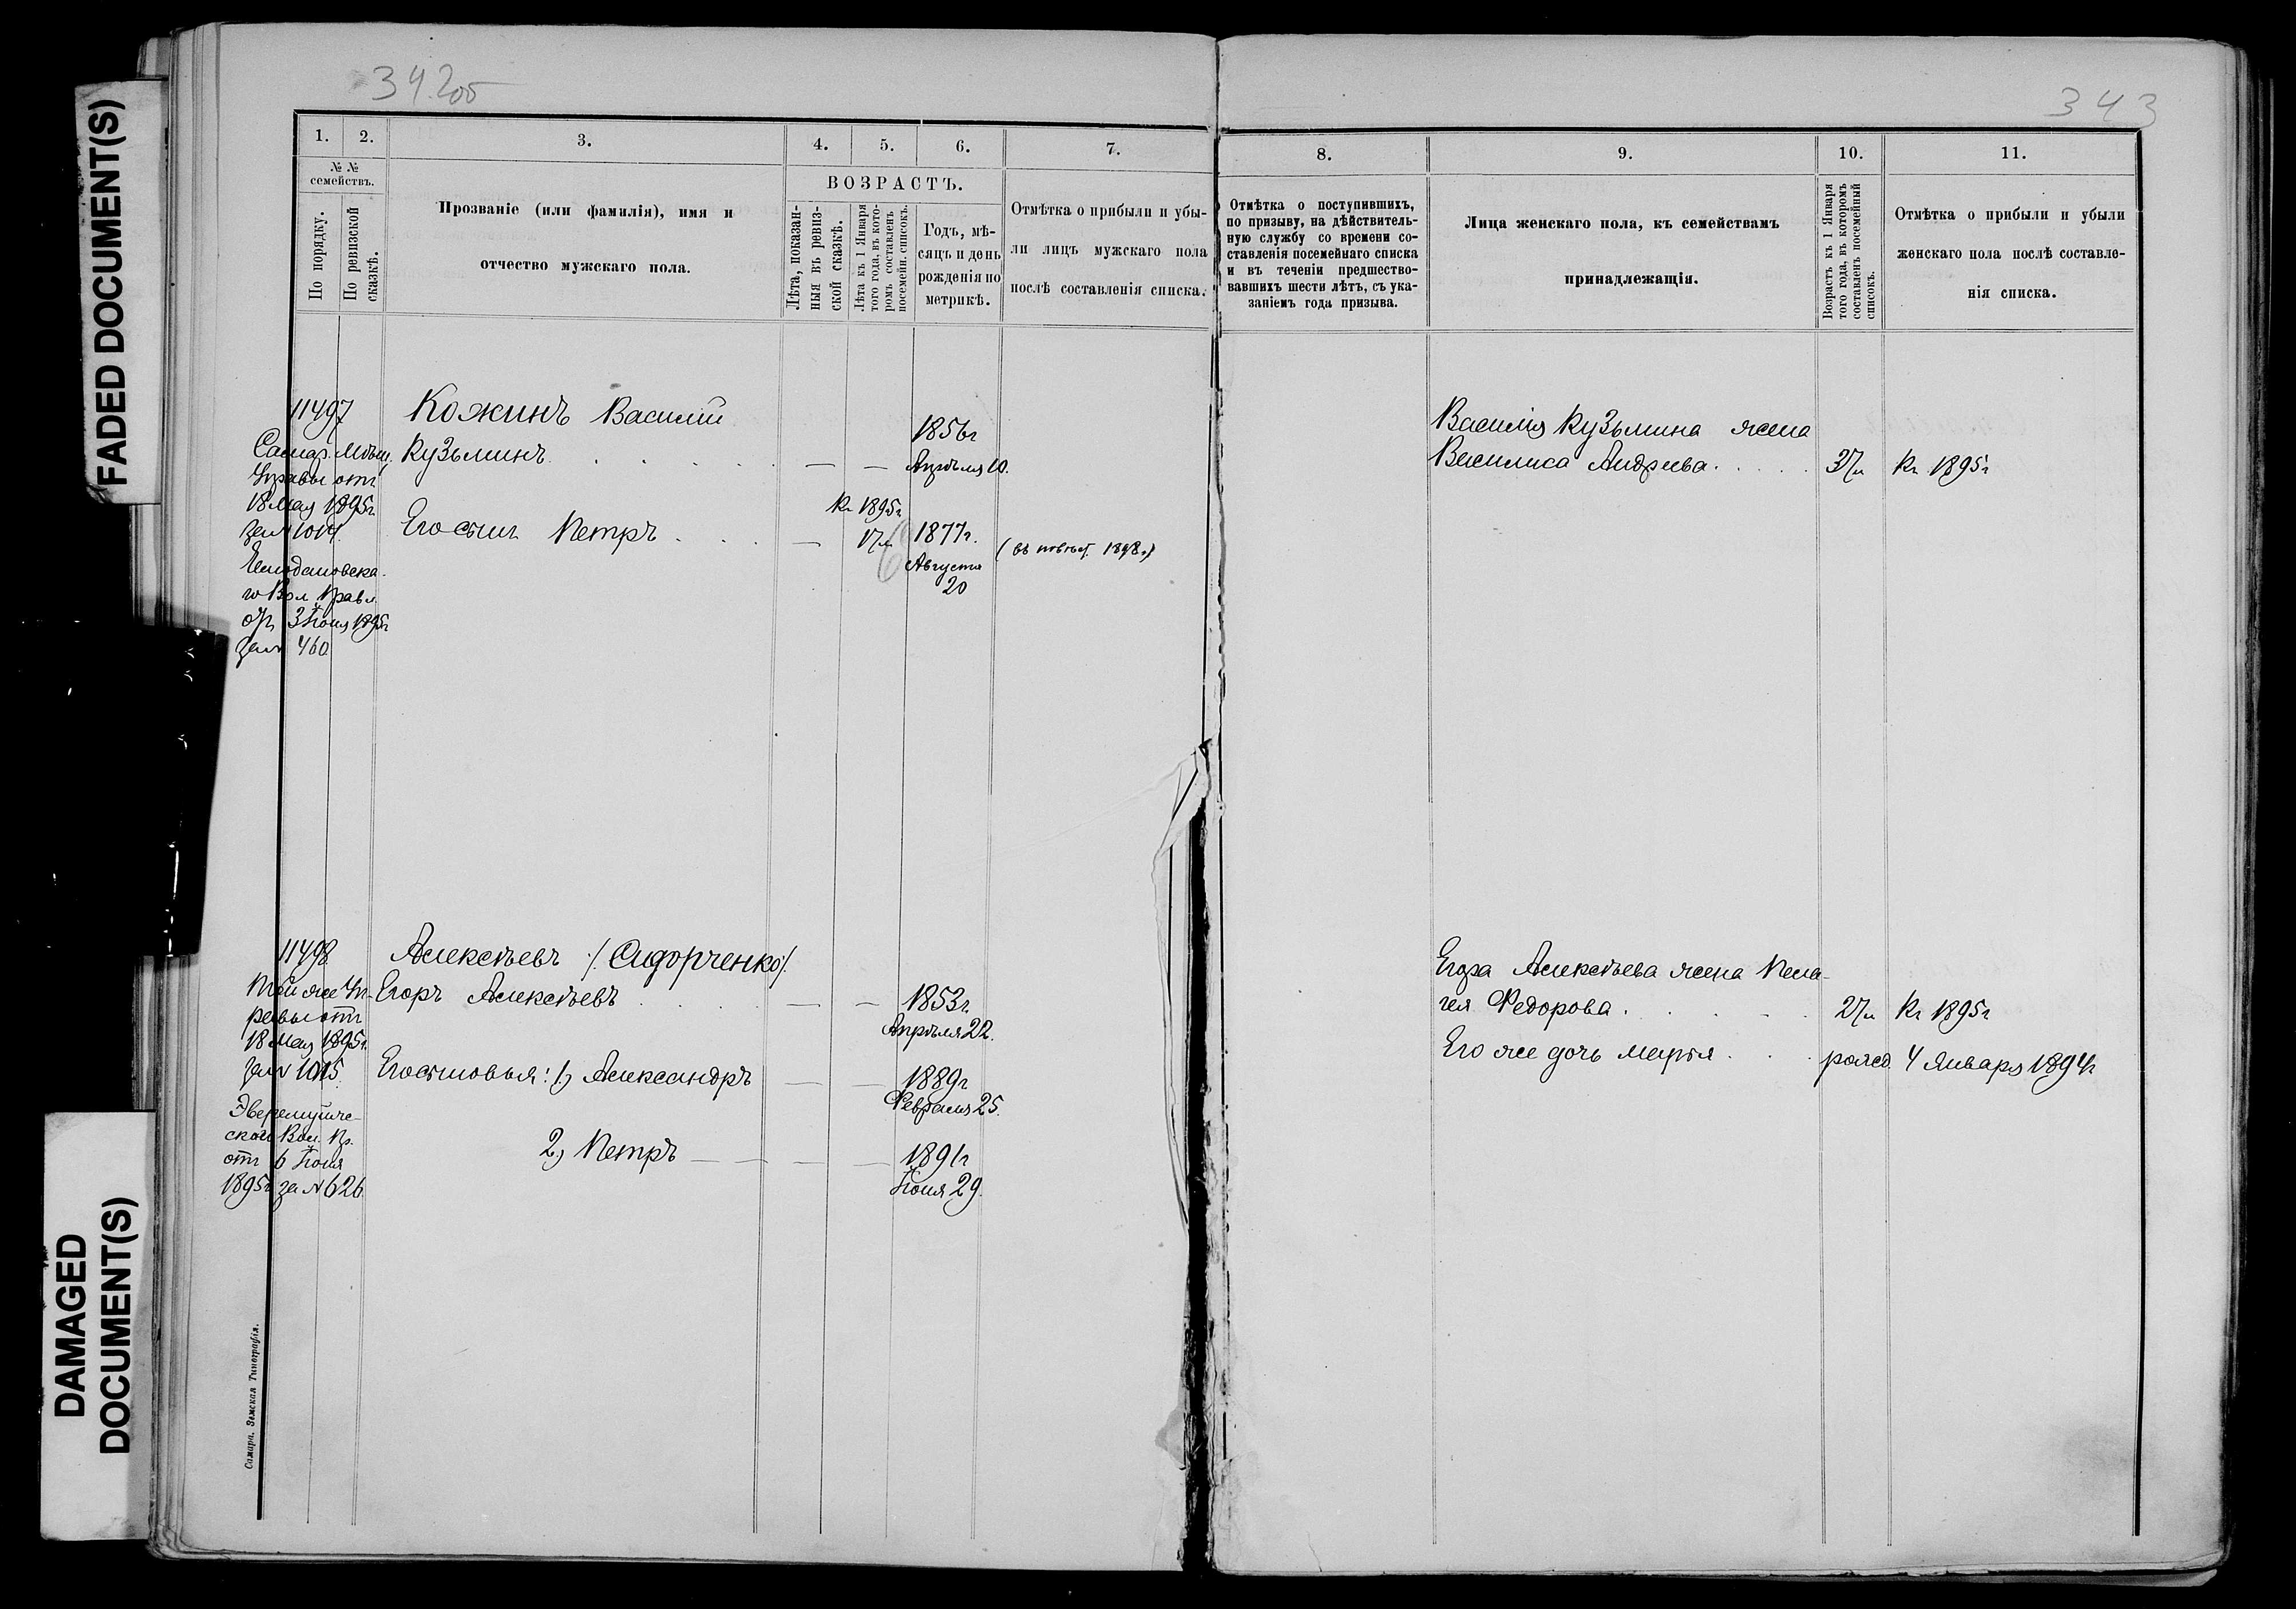 342об
343
FADED DOCUMENT(S)
DAMAGED
DOCUMENT(S)
1.
2.
3.
4.
5.
6.
7.
№ №
семействъ.
По порядку.
По ревизской
сказкѣ.
Прозваніе (или фамилія), имя и
отчество мужскаго пола.
ВОЗРАСТЪ.
Лѣта, показан-
ныя въ ревиз-
ской сказкѣ.
Лѣта къ 1 Января
того года, въ кото-
ромъ составленъ
посемейн. списокъ.
Годъ, мѣ-
сяцъ и день
рожденія по
метрикѣ.
Отмѣтка о прибыли и убы-
ли лицъ мужскаго пола
послѣ составленія списка.
11497
Самар. Мѣщ.
Управы отъ
18 Мая 1895г.
за № 1014.
го Вол. Правл.
отъ 3 Іюня 1895г
за № 460
Кожинъ Василій
Кузьминъ . . . . . — —
1856г
Апрѣля 10.
Къ 1895г
Его сынъ Петръ . . . — 17л
1877г.
Августа
20
1898г)
11498
Той же Уп-
равы отъ
18 Мая 1895г.
за № 1015.
ской Вол. Пр.
отъ 6 Іюня
1895г за № 626
Алексѣевъ /. Сидорченко/.
Егоръ Алексѣевъ . . . — —
1853г.
Апрѣля 22.
Его сыновья: 1, Александръ — —
1889г
Февраля 25.
2, Петръ — — — —
1891г
Іюня 29.
Самара. Земская Типографія.
8.
9.
10.
11.
Отмѣтка о поступившихъ,
по призыву, на дѣйствитель-
ную службу со времени со-
ставленія посемейнаго списка
и въ теченіи предшество-
вавшихъ шести лѣтъ, съ ука-
заніемъ года призыва.
Лица женскаго пола, къ семействамъ
принадлежащія.
Возрастъ къ 1 Января
того года, въ которомъ
составленъ посемейный
списокъ.
Отмѣтка о прибыли и убыли
женскаго пола послѣ составле-
нія списка.
Василія Кузьмина жена
Василиса Андреева . . . . . 37л Къ 1895г
Егора Алексѣева жена Пела-
гея Федорова . . . . 27л Къ 1895г
Его же дочь Марѳа . . . рожд. 4 Января 1894г